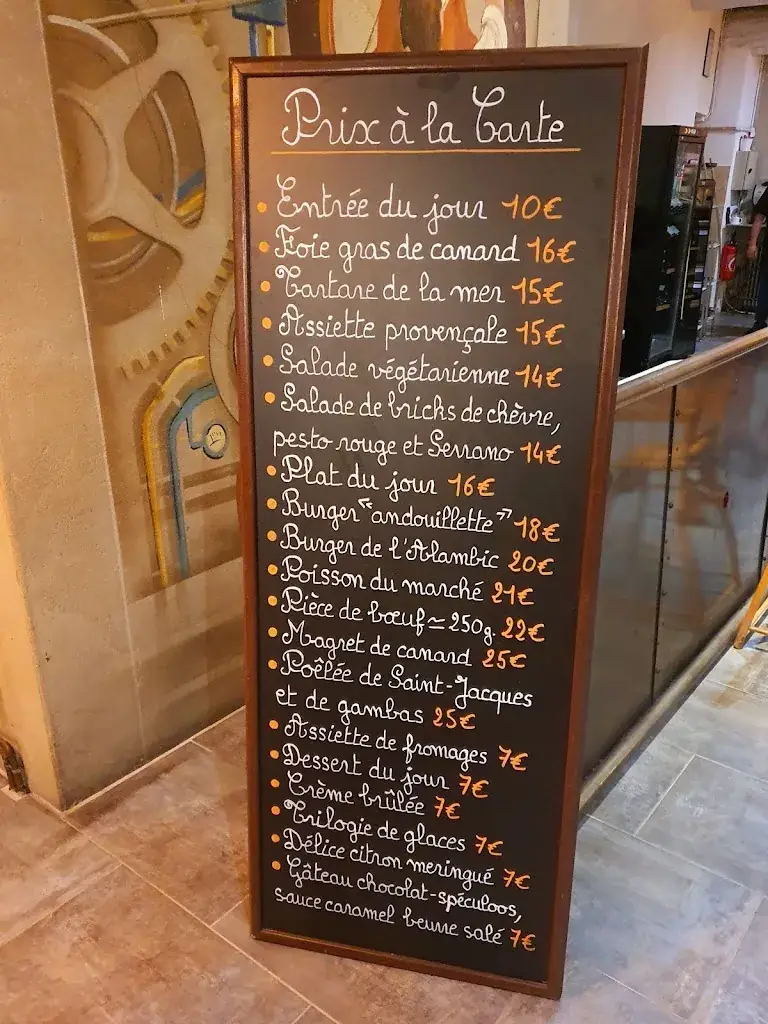 Prix à la Carte
• Entrée du jour 10€
• Foie gras de canard 16€
• Tartare de la mer 15€
• Assiette provençale 15€
• Salade végétarienne 14€
• Salade de bricks de chèvre,
pesto rouge et Serrano 14€
• Plat du jour 16€
• Burger "andouillette" 18€
• Burger de l'Alambic 20€
• Poisson du marché 21€
• Pièce de bœuf ≃ 250g. 22€
• Magret de canard 25€
• Poêlée de Saint-Jacques
et de gambas 25€
• Assiette de fromages 7€
• Dessert du jour 7€
• Crème brûlée 7€
• Trilogie de glaces 7€
• Délice citron meringué 7€
• Gâteau chocolat-spéculoos,
sauce caramel beurre salé 7€